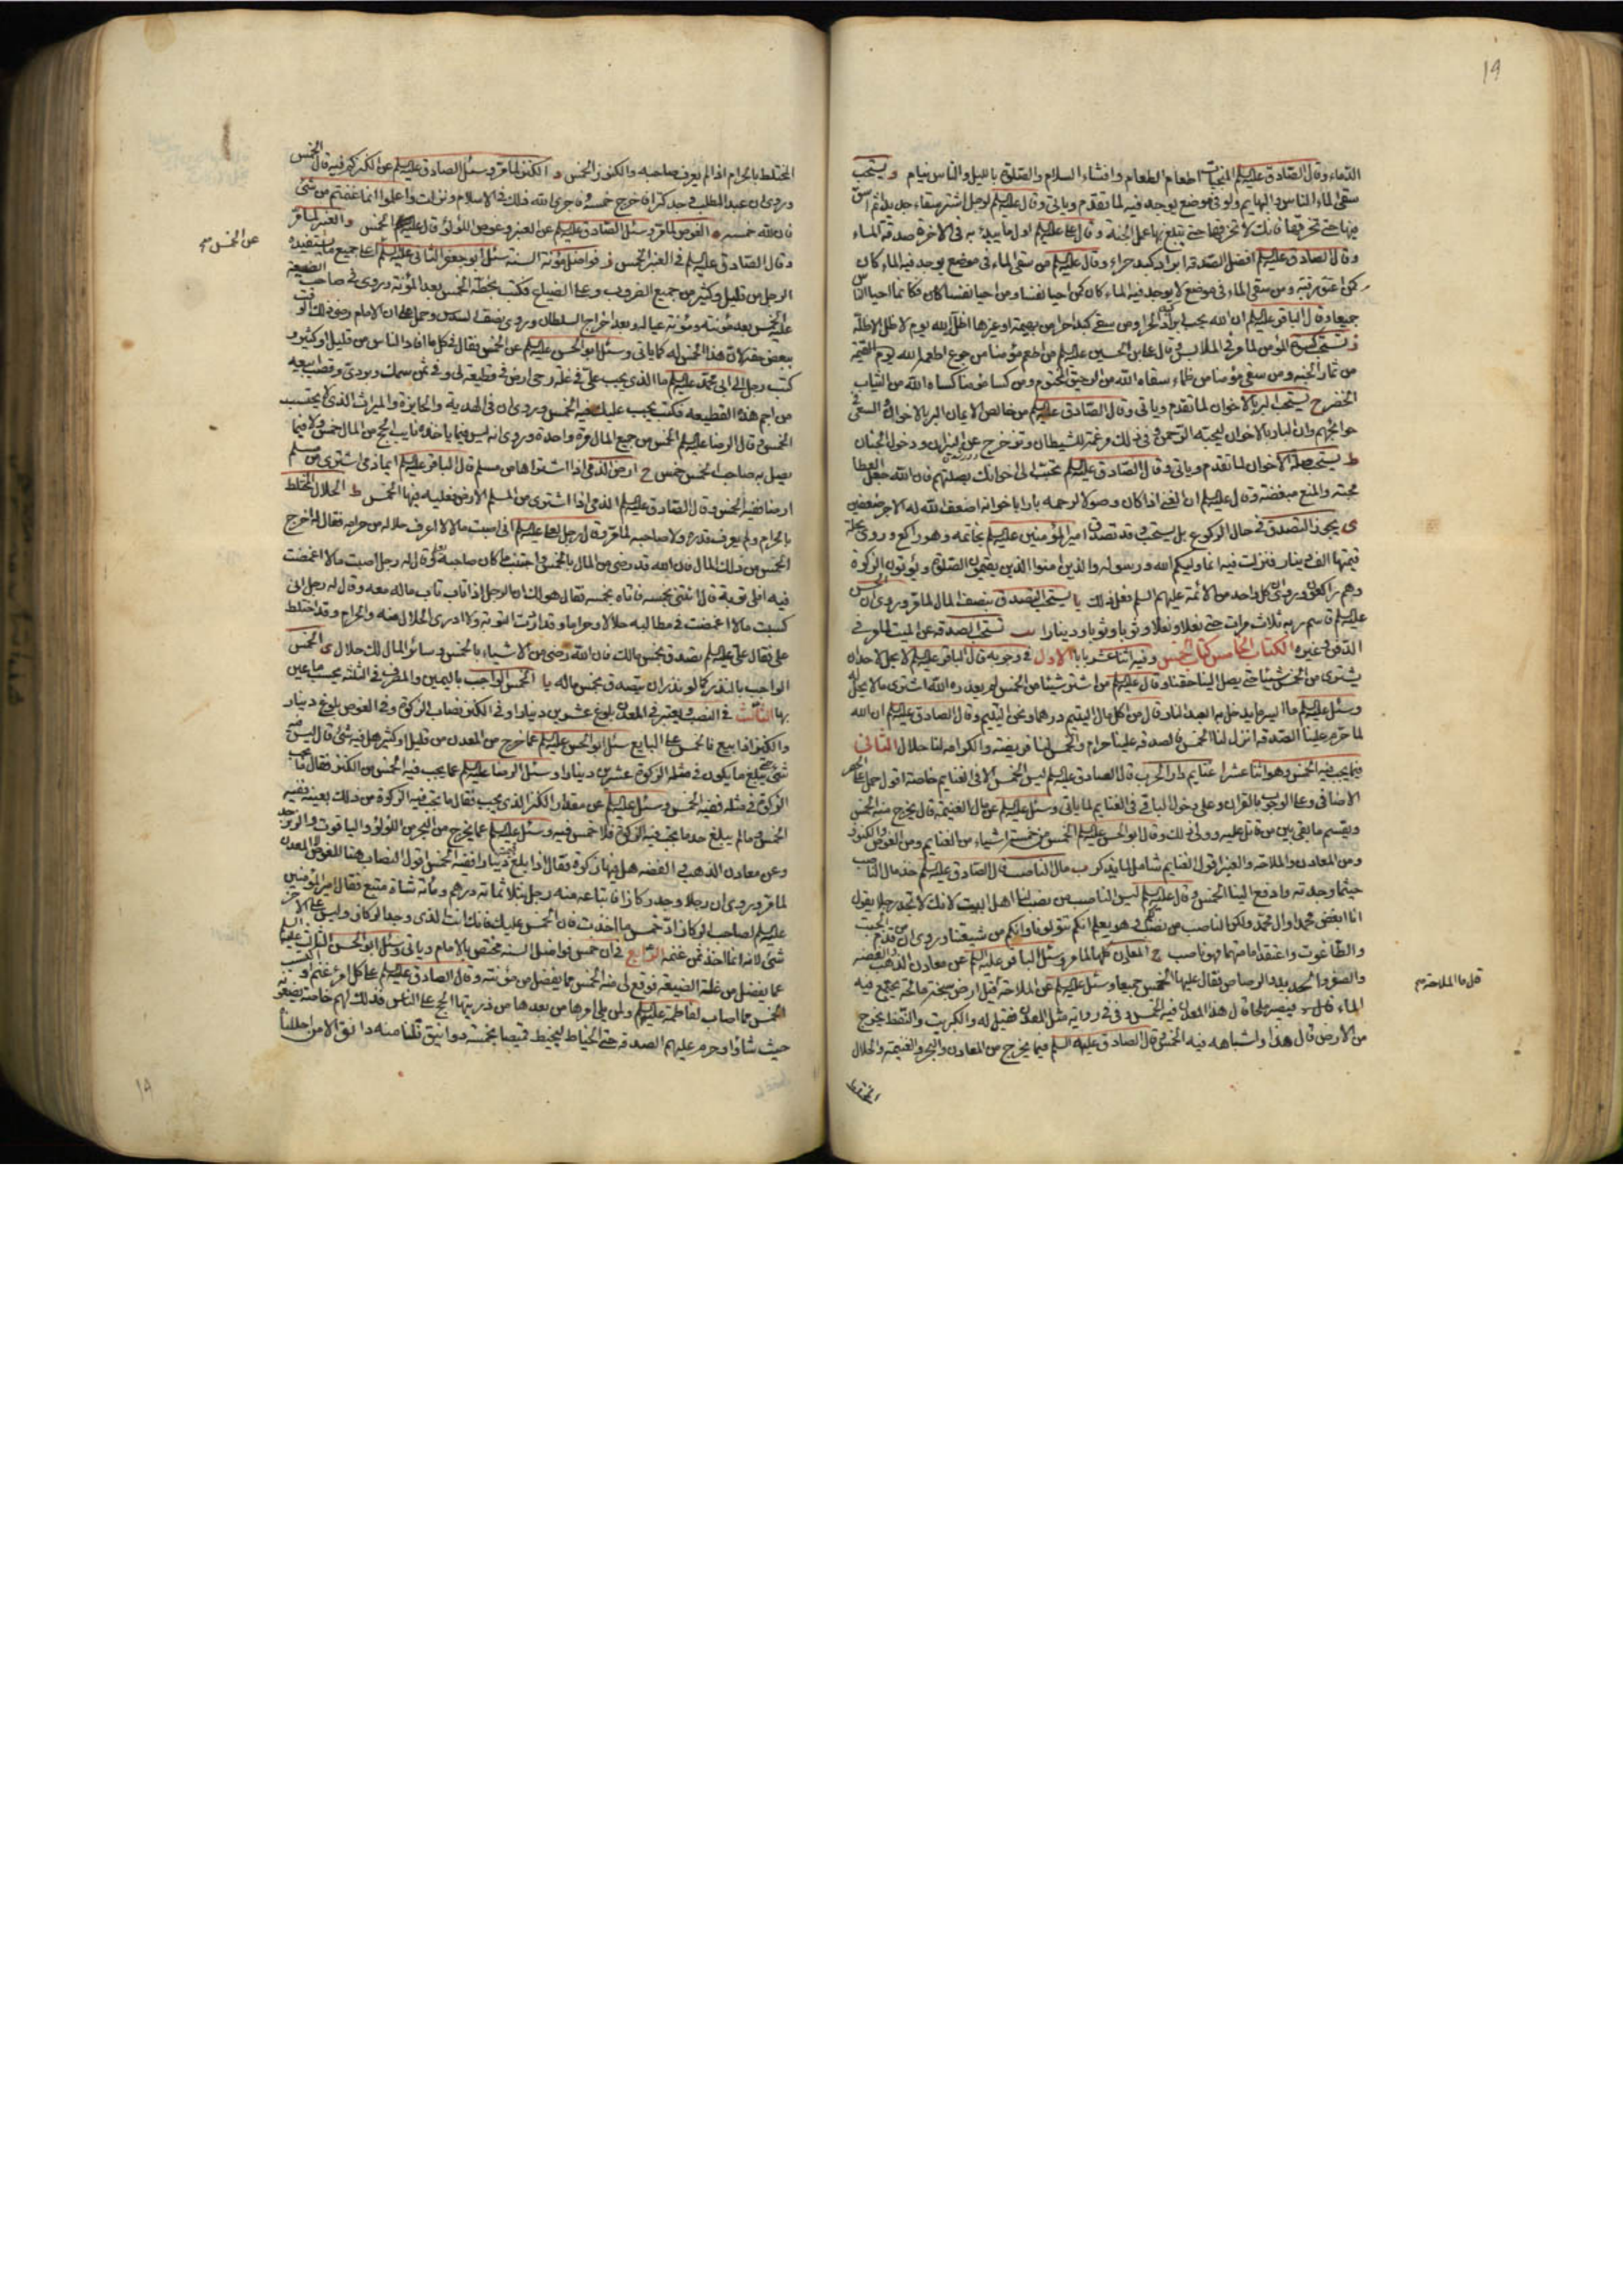 19
الدماء وقال الصادق عليه السلام المنجيات اطعام الطعام وافشاء السلام والصلوة بالليل والناس نيام و يستحب
سقى الماء الناس والبهايم ولو فى موضع يوجد فيه لما تقدم وياتى وقال عليه السلام لرجل اشتر سقاء جديدا ثم اسق
فيها حتى تخرقها فانك لا تخرقها حتى تبلغ بها عمل الجنة وقال على عليه السلام اول ما يبدء به فى الاخرة صدقة الماء
وقال الصادق عليه السلام افضل الصدقة ابراد كبد حراء وقال عليه السلام من سقى الماء فى موضع يوجد فيه الماء كان
كمن اعتق رقبة ومن سقى الماء فى موضع لا يوجد فيه الماء كان كمن احيا نفسا ومن احيا نفسا كان فكانما احيا الناس
جميعا وقال الباقر عليه السلام ان الله يحب ابراد الكبد الحراء ومن سقى كبدا حراء من بهيمة او غيرها اظله الله يوم لا ظل الا ظله
ز يستحب كسوة المؤمن لما مر فى الملابس وقال على بن الحسين عليه السلام من اطعم مؤمنا من جوع اطعمه الله يوم القيمة
من ثمار الجنة ومن سقى مؤمنا من ظماء سقاه الله من الرحيق المختوم ومن كسا مؤمنا كساه الله من الثياب
الخضر ح يستحب البر بالاخوان لما تقدم وياتى وقال الصادق عليه السلام من خالص الايمان البر بالاخوان والسعى فى
حوائجهم وان البار بالاخوان ليحبه الرحمن وفى ذلك مرغمة للشيطان وتزحزح عن النيران ودخول الجنان
ط يستحب صلة الاخوان لما تقدم وياتى وقال الصادق عليه السلام تحبب الى اخوانك بصلتهم فان الله جعل العطا
محبة والمنع مبغضة وقال عليه السلام ان الغنى اذا كان وصولا لرحمه بارا باخوانه اضعف الله له الاجر ضعفين
ى يجوز التصدق فى حال الركوع بل يستحب وقد تصدق امير المؤمنين عليه السلام بخاتمه وهو راكع وروى بحلة
قيمتها الف دينار فنزلت فيه انما وليكم الله ورسوله والذين امنوا الذين يقيمون الصلوة ويؤتون الزكوة
وهم راكعون وروى ان كل واحد من الائمة عليهم السلم فعل ذلك يا يستحب التصدق بنصف المال لما مر وروى ان الحسن
عليه السلام قاسم ربه ثلاث مرات حتى نعلا ونعلا وثوبا وثوبا ودينارا يب تستحب الصدقة عن الميت لما مر فى
الدفن وغيره الكتاب الخامس كتاب الخمس وفيه اثنا عشر بابا الاول فى وجوبه قال الباقر عليه السلام لا يحل لاحد ان
يشترى من الخمس شيئا حتى يصل الينا حقنا وقال عليه السلام من اشترى شيئا من الخمس لم يعذره الله اشترى ما لا يحل له
وسئل عليه السلام ما ايسر ما يدخل به العبد النار وقال من اكل مال اليتيم درهما ونحن اليتيم وقال الصادق عليه السلام ان الله
لما حرم علينا الصدقة انزل لنا الخمس فالصدقة علينا حرام والخمس لنا فريضة والكرامة لنا حلال الثانى
فيما يجب فيه الخمس وهو اثنا عشر ا غنايم دار الحرب قال الصادق عليه السلام ليس الخمس الا فى الغنايم خاصة اقول حمل على الحصر
الاضافى وعلى الوجوب بالقران وعلى دخول الباقى فى الغنايم لما ياتى وسئل عليه السلام عن مال الغنيمة قال يخرج منه الخمس
ويقسم ما بقى بين من قاتل عليه وولى ذلك وقال ابو الحسن عليه السلام الخمس من خمسة اشياء من الغنايم ومن الغوص والكنوز
ومن المعادن والملاحة والعنبر اقول الغنايم شامل لما يذكر ب مال الناصب قال الصادق عليه السلام خذ مال الناصب
حيثما وجدته وادفع الينا الخمس وقال عليه السلام ليس الناصب من نصب لنا اهل البيت لانك لا تجد رجلا يقول
انا ابغض محمدا وال محمد ولكن الناصب من نصب لكم وهو يعلم انكم تتولونا وانكم من شيعتنا وروى ان من قدم الجبت
والطاغوت واعتقد امامتهما فهو ناصب ج المعادن كلها لما مر وسئل الباقر عليه السلم عن معادن الذهب والفضة
والصفر والحديد والرصاص فقال عليها الخمس جميعا وسئل عليه السلام عن الملاحة فقيل ارض سبخة مالحة يجتمع فيه
الماء فيصير ملحا قال هذا المعدن فيه الخمس وفى رواية مثل المعدن فقيل له والكبريت والنفط يخرج
من الارض قال هذا واشباهه فيه الخمس وقال الصادق عليه السلم فيما يخرج من المعادن والبحر والغنيمة والحلال
المختلط
قال ما الملاحة م
المختلط بالحرام اذا لم يعرف صاحبه والكنوز الخمس د الكنز لما مر وسئل الصادق عليه السلام عن الكنز كم فيه قال الخمس
وروى ان عبد المطلب وجد كنزا فاخرج خمسه فاجرى الله ذلك فى الاسلام ونزلت واعلموا انما غنمتم من شئ
فان لله خمسه ه الغوص لما مر وسئل الصادق عليه السلام عن العنبر وغوص اللؤلؤ قال عليه الخمس و العنبر لما مر
وقال الصادق عليه السلام فى العنبر الخمس ز فواضل مؤنة السنة سئل ابو جعفر الثانى عليه السلام اعلى جميع ما يستفيده
الرجل من قليل وكثير من جميع الضروب وعلى الضياع فكتب بخطه الخمس بعد المؤنة وروى فى صاحب الضيعة
عليه الخمس بعد مؤنته ومؤنة عياله وبعد اخراج السلطان وروى نصف السدس وحمل على ان الامام رضى ذلك الوقت
ببعض حقه لان هذا الخمس له كما ياتى وسئل ابو الحسن عليه السلام عن الخمس فقال فى كل ما افاد الناس من قليل او كثير و
كتب رجل الى ابى محمد عليه السلام ما الذى يجب على فى غلة رحى ارض فى قطيعة لى وفى ثمن سمك وبردى وقصب ابيعه
من اجم هذه القطيعة فكتب يجب عليك فيه الخمس وروى ان فى الهدية والجايزة والميراث الذى لا يحتسب
الخمس وقال الرضا عليه السلام الخمس من جميع المال مرة واحدة وروى انه ليس فيما ياخذه نايب الحج من المال خمس ولا فيما
يصل به صاحب الخمس خمس ح ارض الذمى اذا اشتراها من مسلم قال الباقر عليه السلام ايما ذمى اشترى من مسلم
ارضا فعليه الخمس وقال الصادق عليه السلام الذمى اذا اشترى من المسلم الارض فعليه فيها الخمس ط الحلال المختلط
بالحرام ولم يعرف قدره ولا صاحبه لما مر وقال رجل لعلى عليه السلام انى اصبت مالا لا اعرف حلاله من حرامه فقال له اخرج
الخمس من ذلك المال فان الله قد رضى من المال بالخمس واجتنب ما كان صاحبه يعلم وقال له رجل اصبت مالا اغمضت
فيه افلى توبة قال ائتنى بخمسه فاتاه بخمسه فقال هو لك ان الرجل اذا تاب تاب ماله معه وقال له رجل انى
كسبت مالا اغمضت فى مطالبه حلالا وحراما وقد اردت التوبة ولا ادرى الحلال منه والحرام وقد اختلط
على فقال على عليه السلام تصدق بخمس مالك فان الله رضى من الاشياء بالخمس وسائر المال لك حلال ى الخمس
الواجب بالنذر كما لو نذر ان يتصدق بخمس ماله يا الخمس الواجب باليمين والمصرف فى الثلثة بحسب ما عين
بها الثالث فى النصب ويعتبر فى المعدن بلوغ عشرين دينارا وفى الكنز نصاب الزكوة وفى الغوص بلوغ دينار
والكنز اذا بيع فالخمس على البايع سئل ابو الحسن عليه السلام عما خرج من المعدن من قليل او كثير هل فيه شئ قال ليس فيه
شئ حتى يبلغ ما يكون فى مثله الزكوة عشرين دينارا وسئل الرضا عليه السلام عما يجب فيه الخمس من الكنز فقال ما يجب
الزكوة فى مثله ففيه الخمس وسئل عليه السلام عن مقدار الكنز الذى يجب فقال ما تجب فيه الزكوة من ذلك بعينه ففيه
الخمس وما لم يبلغ حد ما تجب فيه الزكوة فلا خمس فيه وسئل عليه السلام عما يخرج من البحر من اللؤلؤ والياقوت والزبرجد
وعن معادن الذهب والفضة هل فيها زكوة فقال اذا بلغ قيمته دينارا ففيه الخمس اقول النصاب هنا للغوص لا المعدن
لما مر وروى ان رجلا وجد ركازا فابتاعه منه رجل بثلاثمائة درهم ومائة شاة متبع فقال امير المؤمنين
عليه السلام لصاحب الركاز اد خمس ما اخذت فان الخمس عليك فانك انت الذى وجد الركاز وليس على الاخر
شئ لانه انما اخذ ثمن غنمه الرابع فى ان خمس فواضل السنة مختص بالامام وياتى وسئل ابو الحسن الثالث عليه السلم
عما يفضل من غلة الضيعة فوقع لى منه الخمس مما يفضل من مؤنته وقال الصادق عليه السلام على كل امرئ غنم او اكتسب
الخمس مما اصاب لفاطمة عليها السلام ولمن يلى امرها من بعدها من ذريتها الحجج على الناس فذلك لهم خاصة يضعونه
حيث شاؤا وحرم عليهم الصدقة حتى الخياط ليخيط قميصا بخمسة دوانيق فلنا منه دانق الا من احللنا
عن الخمس م